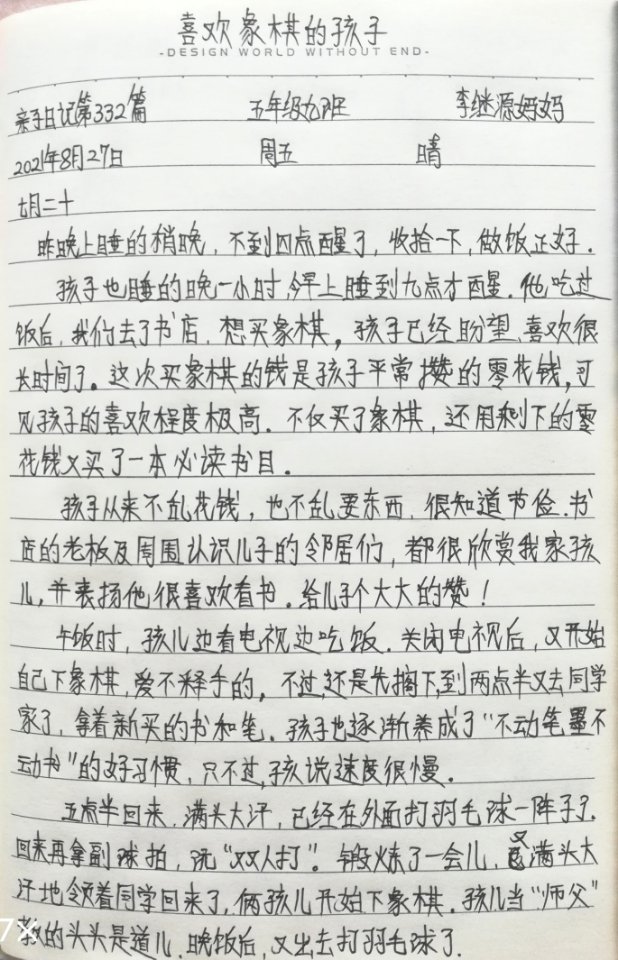 喜欢象棋的孩子
-DESIGN WORLD WITHOUT END-
亲子日记第332篇 五年级九班 李继源妈妈
2021年8月27日 周五 晴
七月二十
昨晚上睡的稍晚，不到四点醒了，收拾一下，做饭正好.
孩子也睡的晚一小时,今早上睡到九点才醒.他吃过
饭后,我们去了书店,想买象棋。孩子已经盼望、喜欢很
长时间了。这次买象棋的钱是孩子平常攒的零花钱,可
见孩子的喜欢程度极高.不仅买了象棋,还用剩下的零
花钱又买了一本必读书目.
孩子从来不乱花钱,也不乱要东西,很知道节俭.书
店的老板及周围认识儿子的邻居们,都很欣赏我家孩
儿,并表扬他很喜欢看书.给儿子个大大的赞！
午饭时,孩儿边看电视边吃饭.关闭电视后,又开始
自己下象棋,爱不释手的。不过,还是先搁下,到两点半又去同学
家了,拿着新买的书和笔.孩子也逐渐养成了“不动笔墨不
动书”的好习惯,只不过,孩说速度很慢。
五点半回来,满头大汗,已经在外面打羽毛球一阵子了.
回来再拿副球拍,说“双人打”.锻炼了一会儿,又满头大
汗地领着同学回来了,俩孩儿开始下象棋.孩儿当“师父”
教的头头是道儿.晚饭后,又出去打羽毛球了.